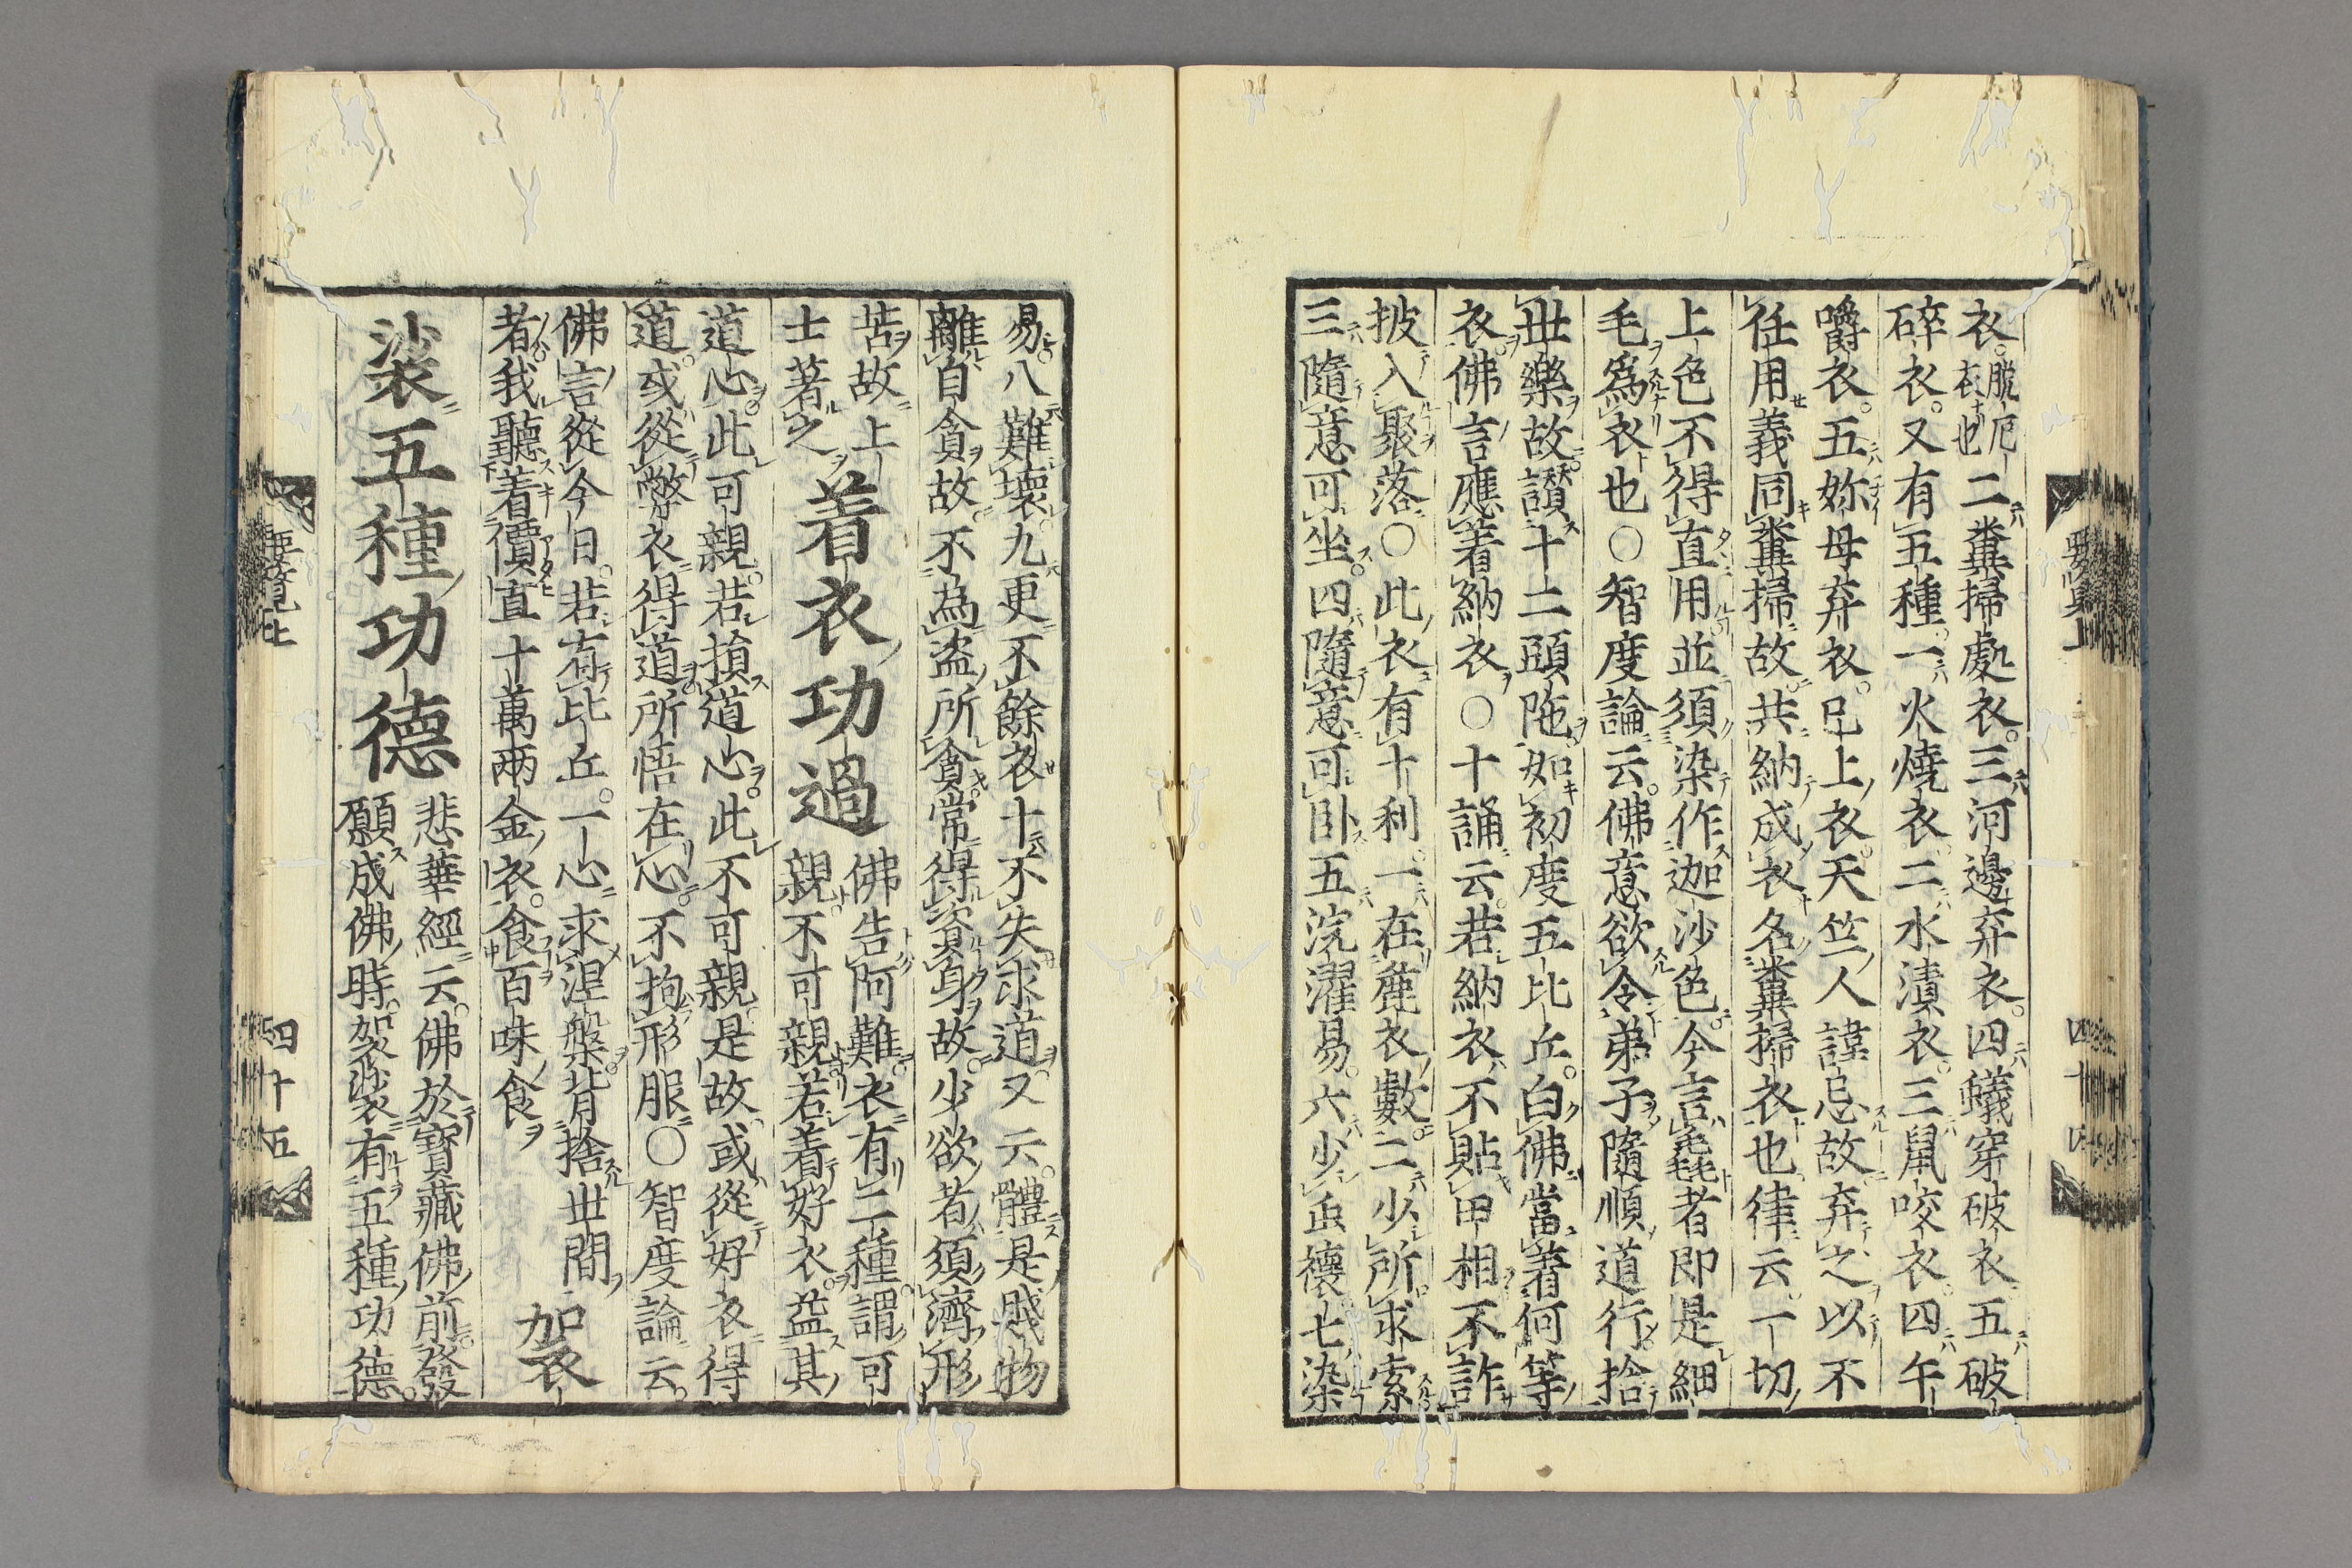 衣。脱厄衣也二糞掃處衣。三河邊弃衣。四蟻穿破衣五破
碎衣。又有五種。一火燒衣。二水漬衣。三鼠咬衣。四午
嚼衣。五妳母弃衣。已上衣。天竺人諱忌故弃之以不
任用義同糞掃故。共納成衣名糞掃衣也律云。一切
上色不得直用並須染作迦沙色。今言毳者即是細
毛爲衣也〇智度論云。佛意欲令弟子隨順道行。捨
丗樂故。讃十二頭陁。如初度五比丘。白佛當着何等
衣。佛言應着納衣〇十誦云。若納衣不貼田相不許
披入聚落〇此衣有十利。一在麁衣數。二少所求索
三隨意可坐。四隨意可卧五浣濯易。六少虫壞七染
要覧上 四十四
易。八難壞。九更不餘衣十不失求道。又云。體是賎物
離自貪故。不為盗所貪。常得資身故。少欲者須濟形
苦故上
士著之
着衣功過
佛告阿難。衣有二種。謂可
親。不可親。若着好衣。益其
道心。此可親。若損道心。此不可親。是故或從好衣得
道。或從弊衣得道。所悟在心。不拘形服〇智度論云。
佛言從今日。若有比丘。一心求涅槃。背捨丗間
者。我聽着價直十萬兩金衣。食百味食
袈
裟五種功德
悲華經云。佛於寶藏佛前。發
願成佛時。袈裟有五種功德。
要覧上 四十五